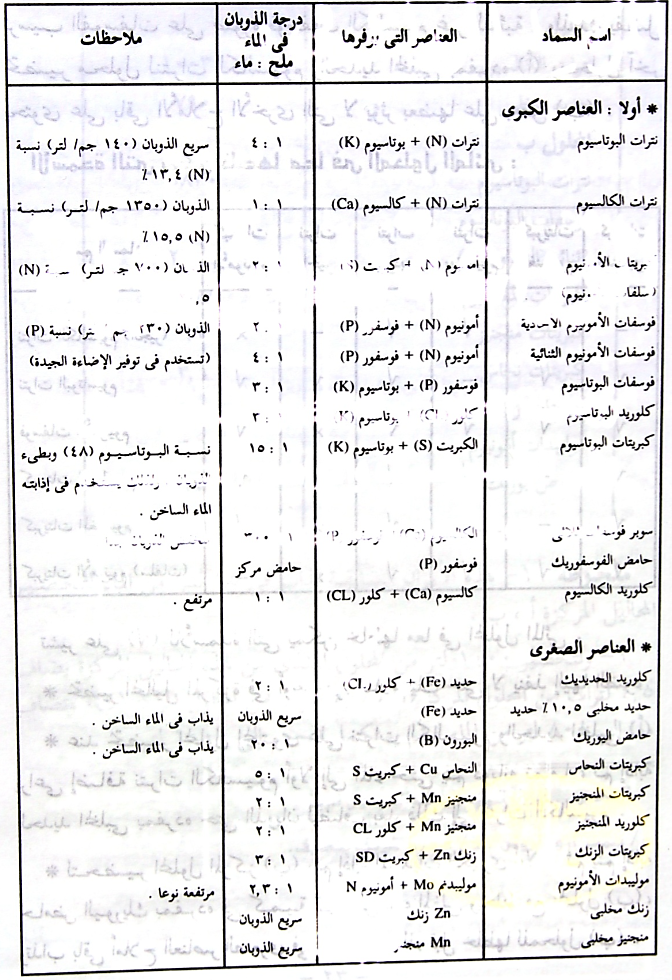 اسم السماد العناصر التى يوفرها درجة الذوبان فى الماء ملح : ماء ملاحظات
* أولا : العناصر الكبرى
نترات البوتاسيوم نترات (N) + بوتاسيوم (K) ١ : ٤ سريع الذوبان (١٤٠ جم/ لتر) نسبة
(N) ١٣,٤ ٪
نترات الكالسيوم نترات (N) + كالسيوم (Ca) ١ : ١ الذوبان (١٣٥٠ جم/ لتـر) نسـبـة
(N) ١٥,٥ ٪
الأمونيوم ١ : ٢ (٧٠٠ لتر) (N)
فوسفات الأمونيوم الاحادية أمونيوم (N) + فوسفور (P) الذوبان نسبة (P)
فوسفات الأمونيوم الثنائية أمونيوم (N) + فوسفور (P) ١ : ٤ (تستخدم فى توفير الإضاءة الجيدة)
فوسفات البوتاسيوم فوسفور (P) + بوتاسيوم (K) ١ : ٣
كلوريد البوتاسيوم كلور (CL) + بوتاسيوم (K) : ٢
كبريتات البوتاسيوم الكبريت (S) + بوتاسيوم (K) ١ : ١٥ نسـبـة البـوتاسـيـوم (٤٨) وبطىء
فى إذابته
الماء الساخن .
سوبر ٣٠٠
حامض الفوسفوريك فوسفور (P) حامض مركز
كلوريد الكالسيوم كالسيوم (Ca) + كلور (CL) ١ : ١ مرتفع .
* العناصر الصغرى
كلوريد الحديديك حديد (Fe) + كلور (CL) ١ : ٢
حديد مخلبى ١٠,٥ ٪ حديد حديد (Fe) سريع الذوبان يذاب فى الماء الساخن .
حامض البوريك البورون (B) ١ : ٢٠ يذاب فى الماء الساخن .
كبريتات النحاس النحاس Cu + كبريت S ١ : ٥
كبريتات المنجنيز منجنيز Mn + كبريت S ١ : ٢
كلوريد المنجنيز منجنيز Mn + كلور CL ١ : ٢
كبريتات الزنك زنك Zn + كبريت SD ١ : ٣
موليبدات الأمونيوم موليبدنم Mo + أمونيوم N ١ : ٢,٣ مرتفعة نوعا .
زنك مخلبى Zn زنك سريع الذوبان
منجنيز مخلبى Mn سريع الذوبان